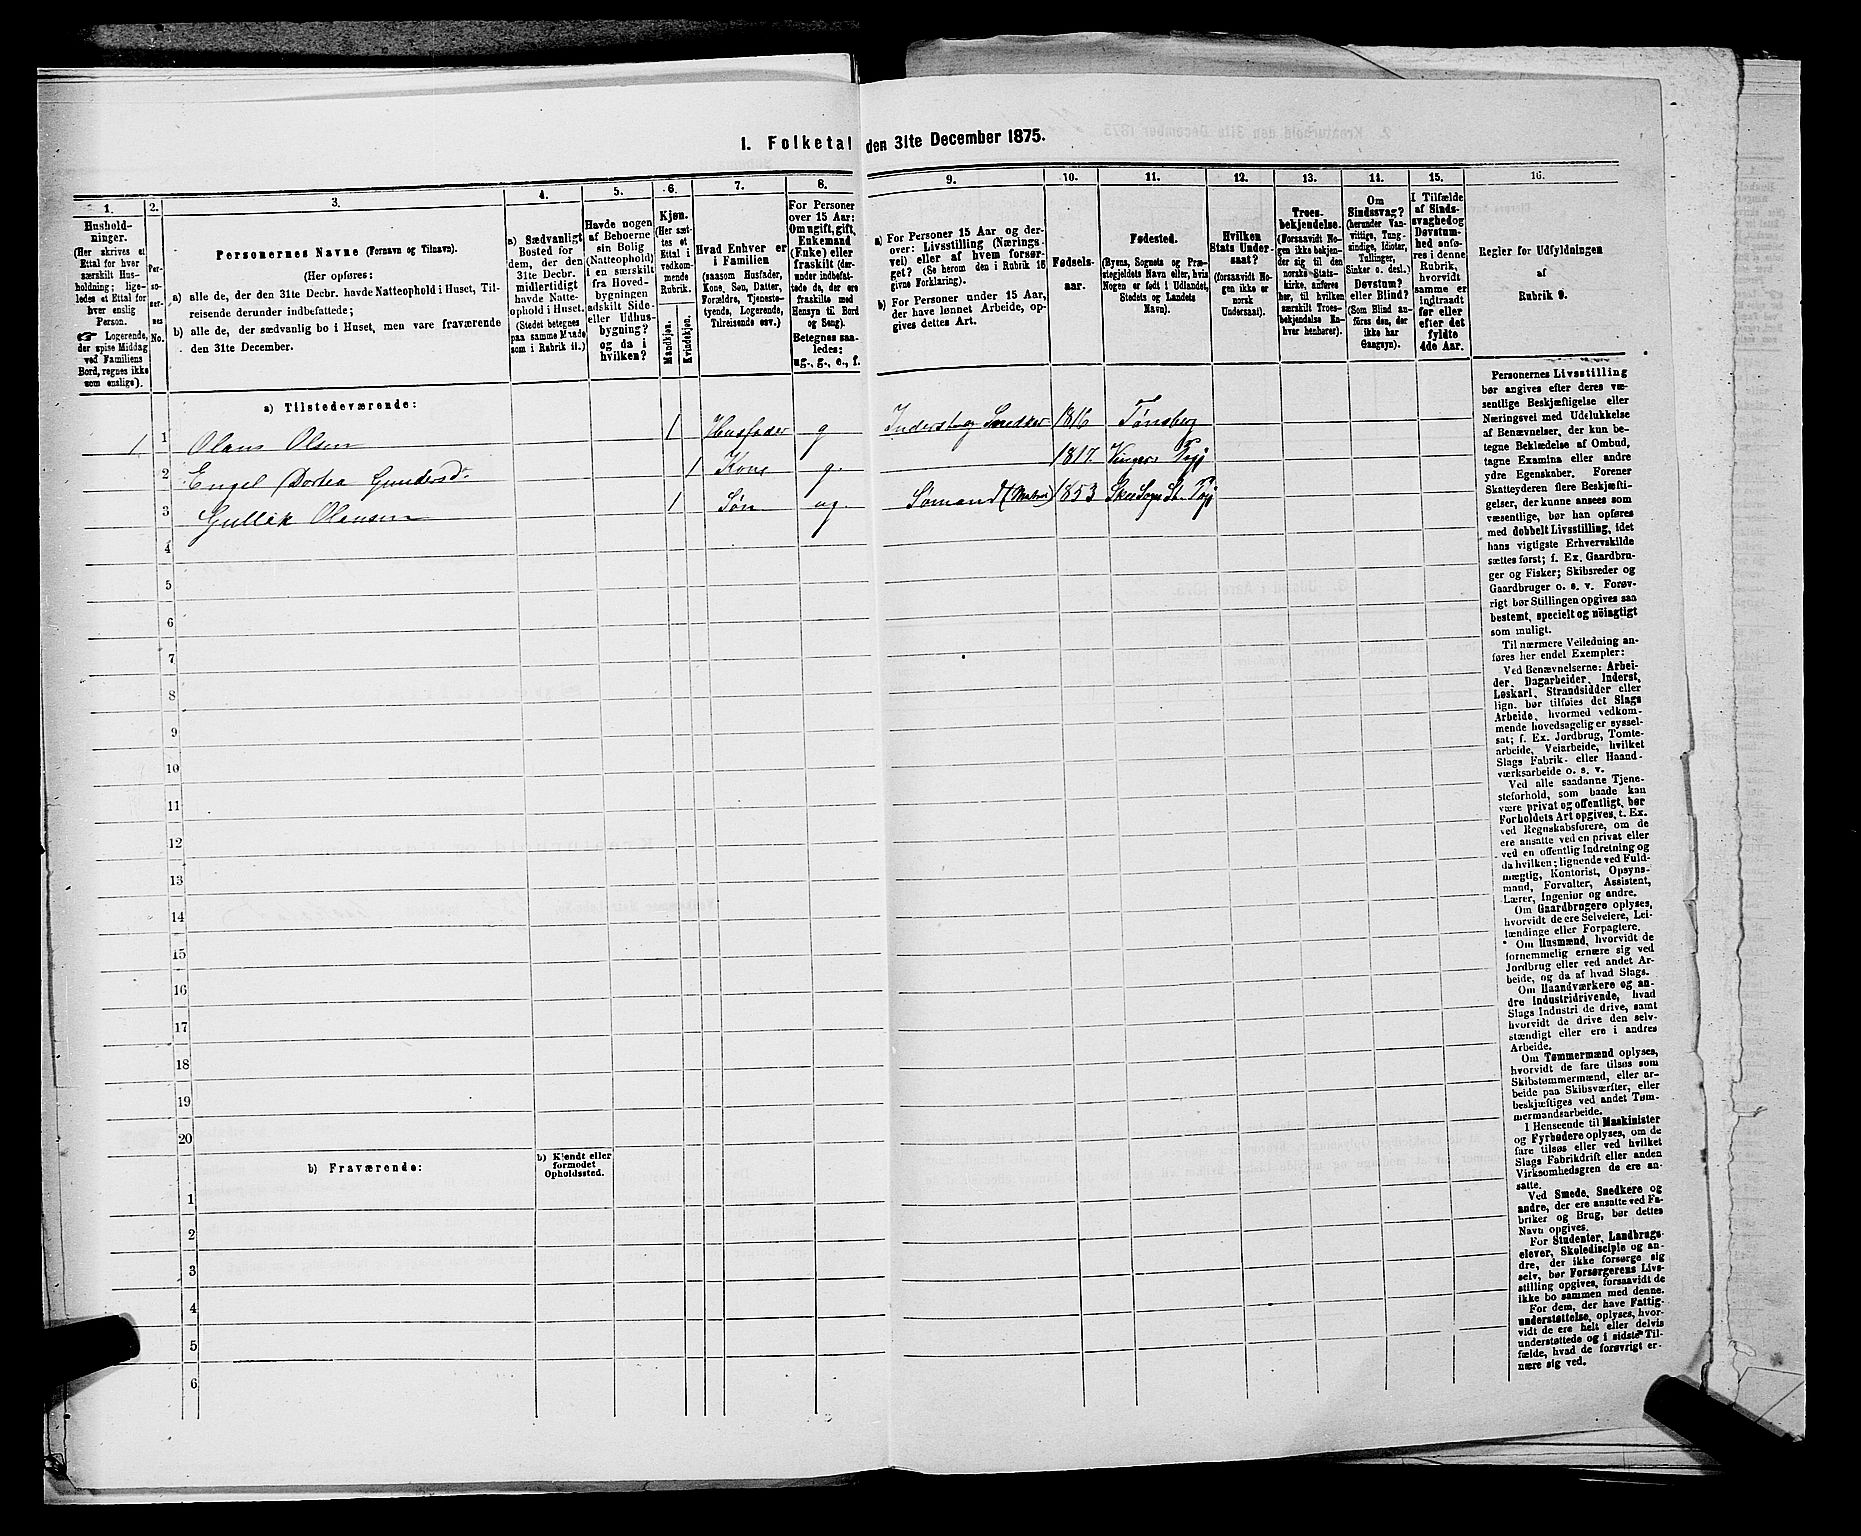 1. Folketal den 31te December 1875.
1.
Hushold-
ninger.
(Her skrives et
Ettal for hver
særskilt Hus-
holdning; lige-
ledes et Ettal for
hver enslig
Person.
☛ Logerende,
der spise Middag
ved Familiens
Bord, regnes ikke
som enslige).
2.
Per-
so-
ner-
nes
No.
3.
Personernes Navne (Fornavn og Tilnavn).
(Her opføres:
a) alle de, der den 31te Decbr. havde Natteophold i Huset, Til-
reisende derunder indbefattede;
b) alle de, der sædvanlig bo i Huset, men vare fraværende
den 31te December.
4.
a) Sædvanligt
Bosted for
dem, der den
31te Decbr.
midlertidigt
havde Natte-
ophold i Huset.
(Stedet betegnes
paa samme Maade
som i Rubrik 11.)
5.
Havde nogen
af Beboerne
sin Bolig
(Natteophold)
i en særskilt
fra Hoved-
bygningen
adskilt Side-
eller Udhus-
bygning?
og da i
hvilken?
6.
Kjøn.
(Her sæt-
tes et
Ettal i
vedkom-
mende
Rubrik.
Mandkjøn.
Kvindekjøn.
7.
Hvad Enhver er
i Familien
(saasom Husfader,
Kone, Søn, Datter,
Forældre, Tjeneste-
tyende, Logerende,
Tilreisende osv.)
8.
For Personer
over 15 Aar:
Om ugift, gift,
Enkemand
(Enke) eller
fraskilt (der-
under indbefat-
tede de, der ere
fraskilte med
Hensyn til Bord
og Seng).
Betegnes saa-
ledes:
ug., g., e., f.
9.
a) For Personer 15 Aar og der-
over: Livsstilling (Nærings-
vei) eller af hvem forsør-
get? (Se herom den i Rubrik 16
givne Forklaring).
b) For Personer under 15 Aar,
der have lønnet Arbeide, op-
gives dettes Art.
10.
Fødsels-
aar.
11.
Fødested.
(Byens, Sognets og Præ-
stegjeldets Navn eller, hvis
Nogen er født i Udlandet,
Stedets og Landets
Navn).
12.
Hvilken
Stats Under-
saat?
(forsaavidt No-
gen ikke er
norsk
Undersaat).
13.
Troes-
bekjendelse.
(Forsaavidt No-
gen ikke bekjen-
der sig til den
norske Stats-
kirke, anføres
her, til hvilken
særskilt Troes-
bekjendelse En-
hver henhører).
14.
Om
Sindssvag?
(herunder Van-
vittige, Tung-
sindige, Idioter,
Tullinger,
Sinker o. desl.)
Døvstum?
eller Blind?
(Som Blind an-
føres den, der
ikke har
Gangsyn).
15.
I Tilfælde
af Sinds-
svaghed og
Døvstum-
hed anfø-
res i denne
Rubrik,
hvorvidt
samme er
indtraadt
før eller
efter det
fyldte
4de Aar.
16.
Regler for Udfyldningen
af
Rubrik 9.
a) Tilstedeværende:
1 1 Olaus Olsen 1 Husfader g Inderst og Snedker 1816 Tønsberg
2 Engel Dortea Gundersd. 1 Kone g. 1817
3 Gullik Olausen 1 Søn ug. Sømand (Matros) 1853
4
5
6
7
8
9
10
11
12
13
14
15
16
17
18
19
20
b) Fraværende:
b) Kjendt eller
formodet
Opholdssted.
1
2
3
4
5
6
Personernes Livsstilling
bør angives efter deres væ-
sentlige Beskjæftigelse eller
Næringsvei med Udelukkelse
af Benævnelser, der kun be-
tegne Beklædelse af Ombud,
tagne Examina eller andre
ydre Egenskaber. Forener
Skatteyderen flere Beskjæfti-
gelser, der kunne ansees som
væsentlige, bør han opføres
med dobbelt Livsstilling, idet
hans vigtigste Erhvervskilde
sættes først; f. Ex. Gaardbru-
ger og Fisker; Skibsreder og
Gaardbruger o. s. v. Forøv-
rigt bør Stillingen opgives saa
bestemt, specielt og nöiagtigt
som muligt.
Til nærmere Veiledning an-
føres her endel Exempler:
Ved Benævnelserne: Arbei-
der, Dagarbeider, Inderst,
Løskarl, Strandsidder eller
lign. bør tilføies det Slags
Arbeide, hvormed vedkom-
mende hovedsagelig er syssel-
sat; f. Ex. Jordbrug, Tomte-
arbeide, Veiarbeide, hvilket
Slags Fabrik- eller Haand-
værksarbeide o. s. v.
Ved alle saadanne Tjene-
steforhold, som baade kan
være privat og offentligt, bør
Forholdets Art opgives, t. Ex.
ved Regnskabsførere, om de
ere ansatte ved en privat eller
ved en offentlig Indretning og
da hvilken; lignende ved Fuld-
mægtig, Kontorist, Opsyns-
mand, Forvalter, Assistent,
Lærer, Ingeniør og andre.
Om Gaardbrugere oplyses,
hvorvidt de ere Selveiere, Lei-
lændinge eller Forpagtere.
Om Husmænd, hvorvidt de
fornemmelig ernære sig ved
Jordbrug eller ved andet Ar-
beide, og da af hvad Slags.
Om Haandværkere og an-
dre Industridrivende, hvad
Slags Industri de drive, samt
hvorvidt de drive den selv-
stændigt eller ere i andres
Arbeide.
Om Tømmermænd oplyses,
hvorvidt de fare tilsøs som
Skibstømmermænd, eller ar-
beide paa Skibsværfter, eller
beskjæftiges ved andet Tøm-
mermandsarbeide.
I Henseende til Maskinister
og Fyrbødere oplyses, om de
fare tilsøs eller ved hvilket
Slags Fabrikdrift eller anden
Virksomhedsgren de ere an-
satte.
Ved Smede, Snedkere og
andre, der ere ansatte ved Fa-
briker og Brug, bør dettes
Navn opgives.
For Studenter, Landbrugs-
elever, Skoledisciple og an-
dre, der ikke forsørge sig
selv, bør Forsørgerens Livs-
stilling opgives, forsaavidt de
ikke bo sammen med denne.
For dem, der have Fattig-
understøttelse, oplyses, hvor-
vidt de ere helt eller delvis
understøttede og i sidste Til-
fælde, hvad de forsørvrigt er-
nære sig ved.